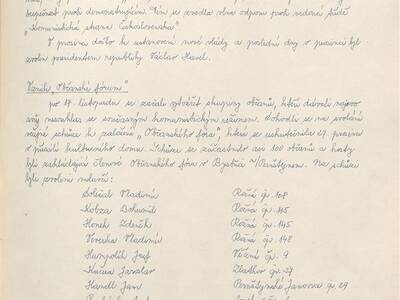 bezpečnost proti demonstrujícím. Tím se zvedla vlna odporu proti vedoucí úloze
„Komunistická strana Československa".
V prosinci došlo k ustanovení nové vlády a poslední dny v prosinci byl
zvolen presidentem republiky Václav Havel.
Vznik „Občanské forum"
po 17. listopadu se začaly vytvářet skupiny občanů, kteří dávali najevo
svůj nesouhlas se současným komunistickým režimem. Dohodli se na svolání
schůze k založení „Občanského fóra", která se uskutečnila 27. prosince
v přísálí kulturního domu. Schůze se zúčastnilo asi 100 občanů a hosty
byli zakládající členové Občanského fóra v Bystřici n/Pernštejnem. Na schůzi
byli zvoleni mluvčí:
Doležal Vladimír Rožná čp. 108
Kobza Bohumil Rožná čp. 165
Horek Zdeněk Rožná čp. 145
Veverka Vladimír Rožná čp. 148
Humpolík Josef Věžná č. 9
Kučera Jaroslav Zlatkov čp. 27
Handl Jan Pernštejnské Janovice čp. 29